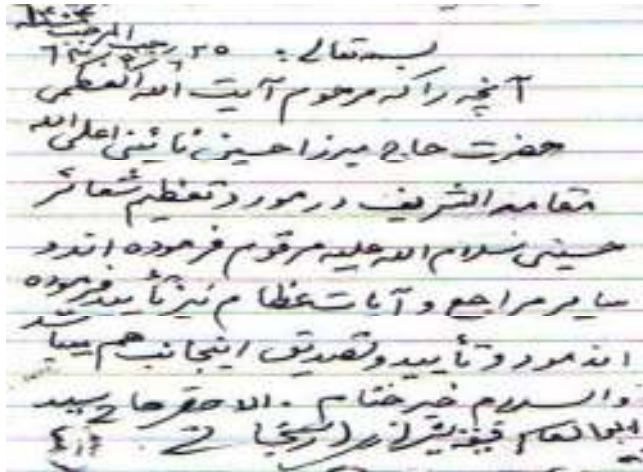 بسمه تعالی ۲۵ رجب المرجب ۱۴۰۴
آنچه را که مرحوم آیت الله العظمی
حضرت حاج میرزا حسین نائینی اعلی الله
مقامه الشریف در مورد تعظیم شعائر
حسینی سلام الله علیه مرقوم فرموده اند و
سایر مراجع و آیات عظام نیز تأیید فرموده
اند مورد تأیید و تصدیق اینجانب هم میباشد
والسلام خیر ختام . الاحقر حاج سید
ابوالقاسم